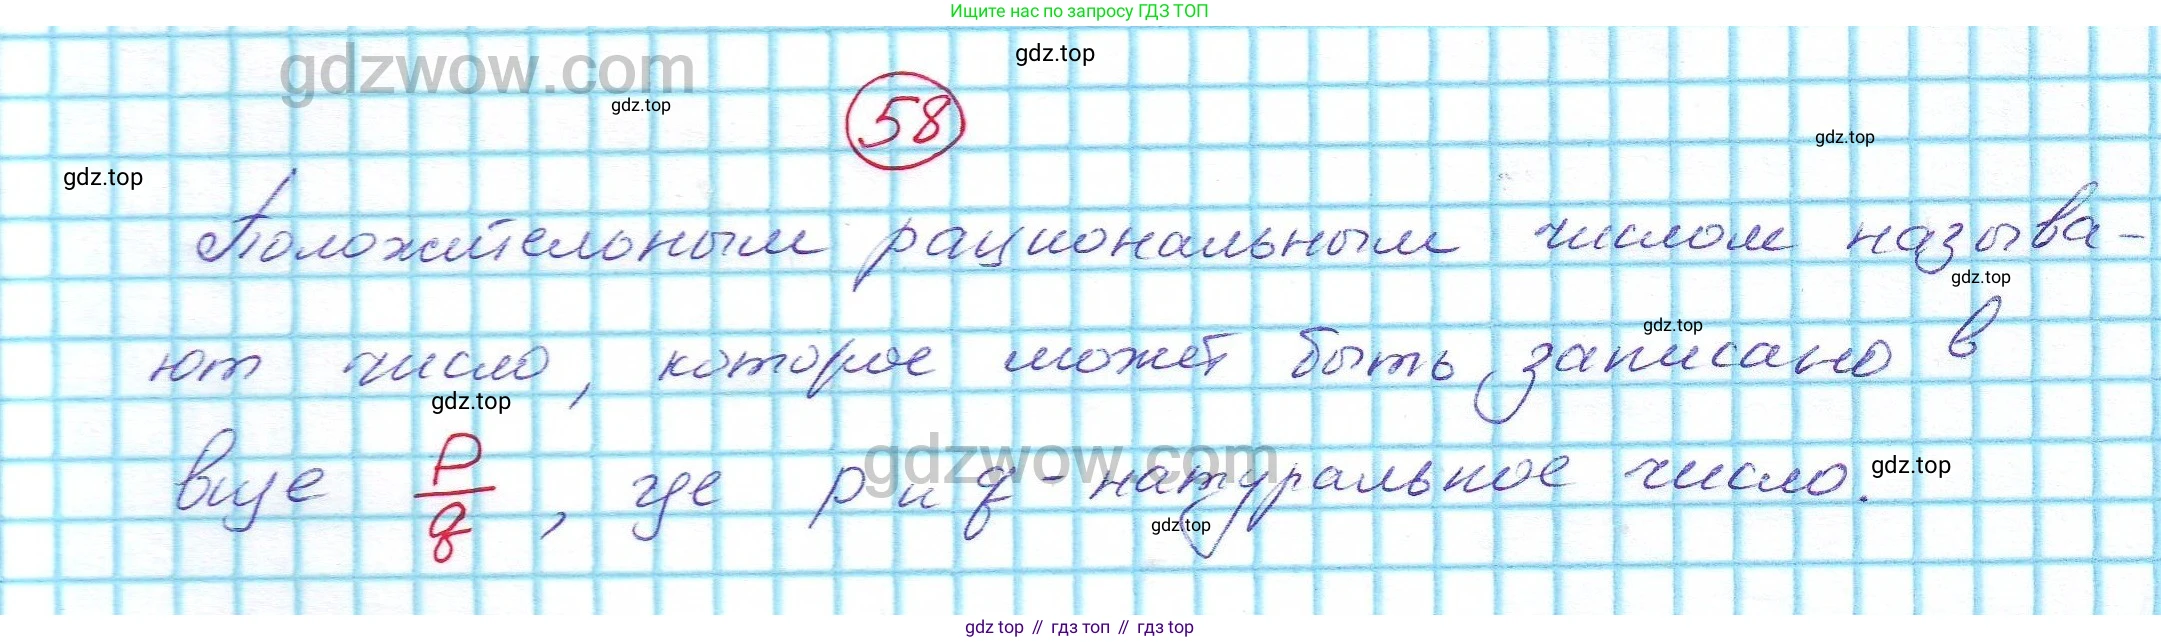 Ищите нас по запросу ГДЗ ТОП
gdzwow.com
gdz.top
gdz.top
58
gdz.top
gdz.top
Положительным рациональным числом называ-
gdz.top
ют число, которое может быть записано в
gdz.top
gdz.top
виде p/q, где p и q - натуральное число.
gdzwow.com
gdz.top
gdz.top
gdz top // гдз топ // gdz top